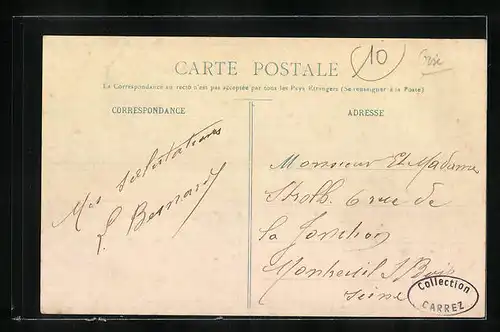 10
CARTE POSTALE
La Correspondance au recto n'est pas acceptée par tous les Pays Etrangers (Se renseigner à la Poste)
CORRESPONDANCE
ADRESSE
Mes salutations
L. Besnard
Monsieur Et Madame
Stroth. 6 rue de
la Jonction
Montreuil S/ Bois
Seine
Collection
CARREZ